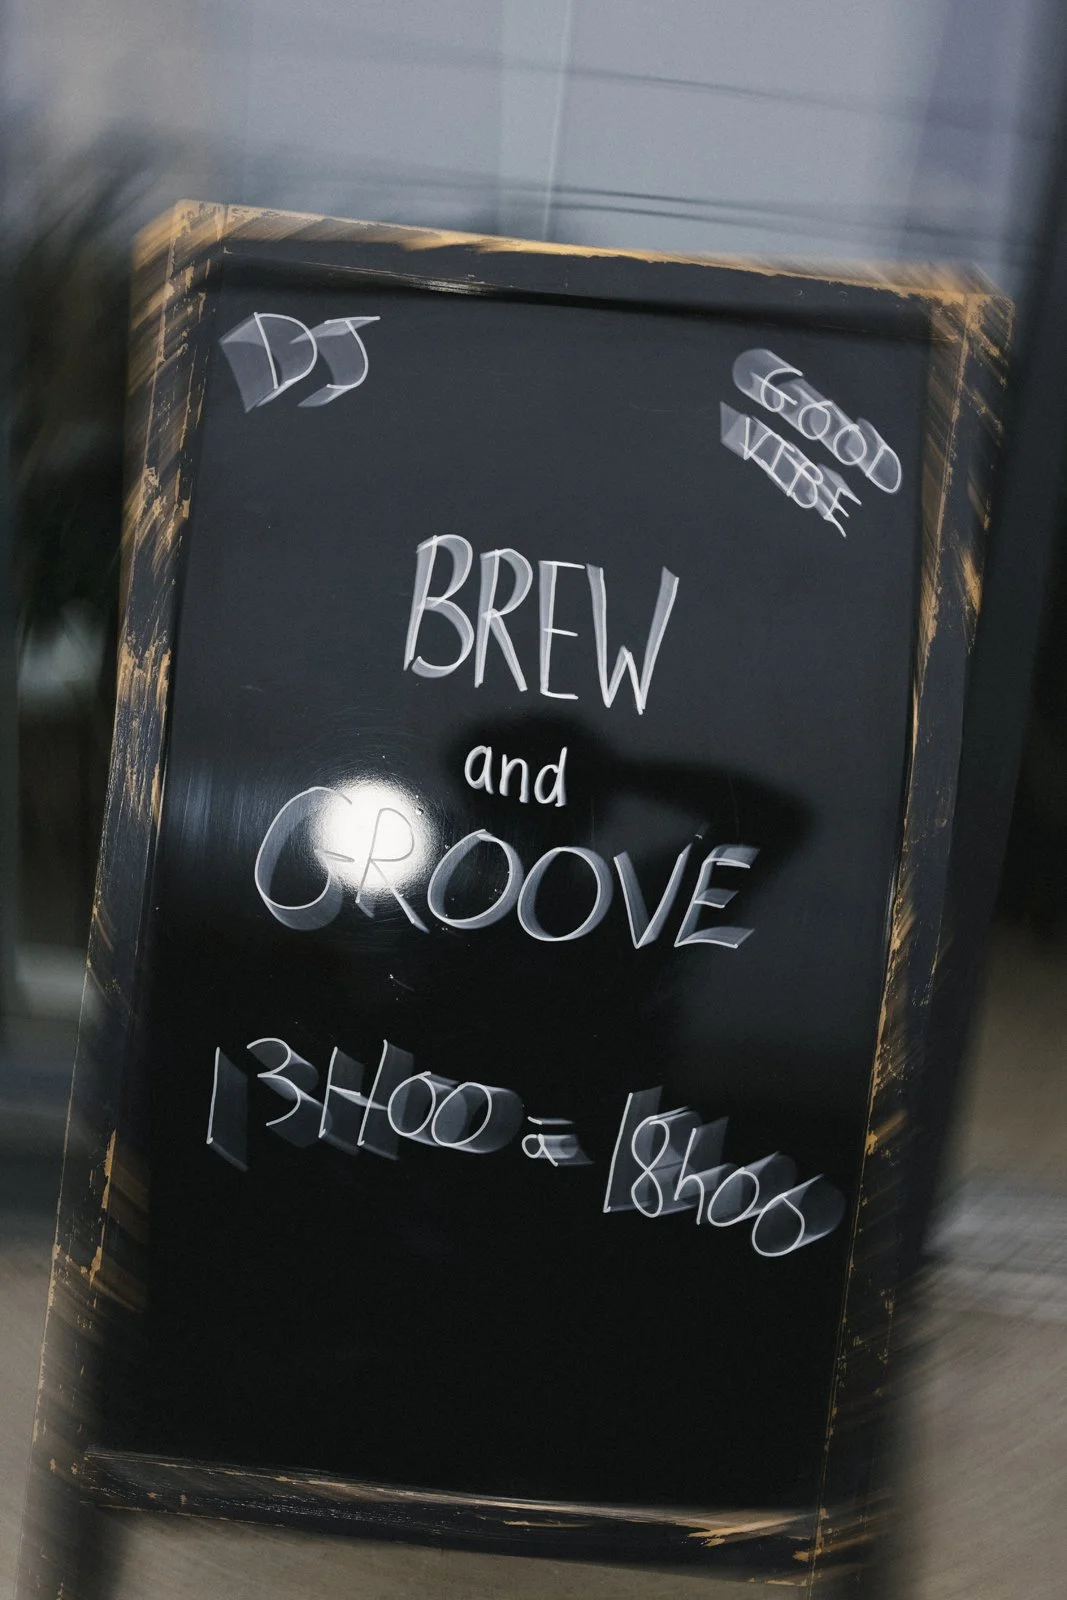 DJ
GOOD
VIBE
BREW
and
GROOVE
13H00 à 18h00